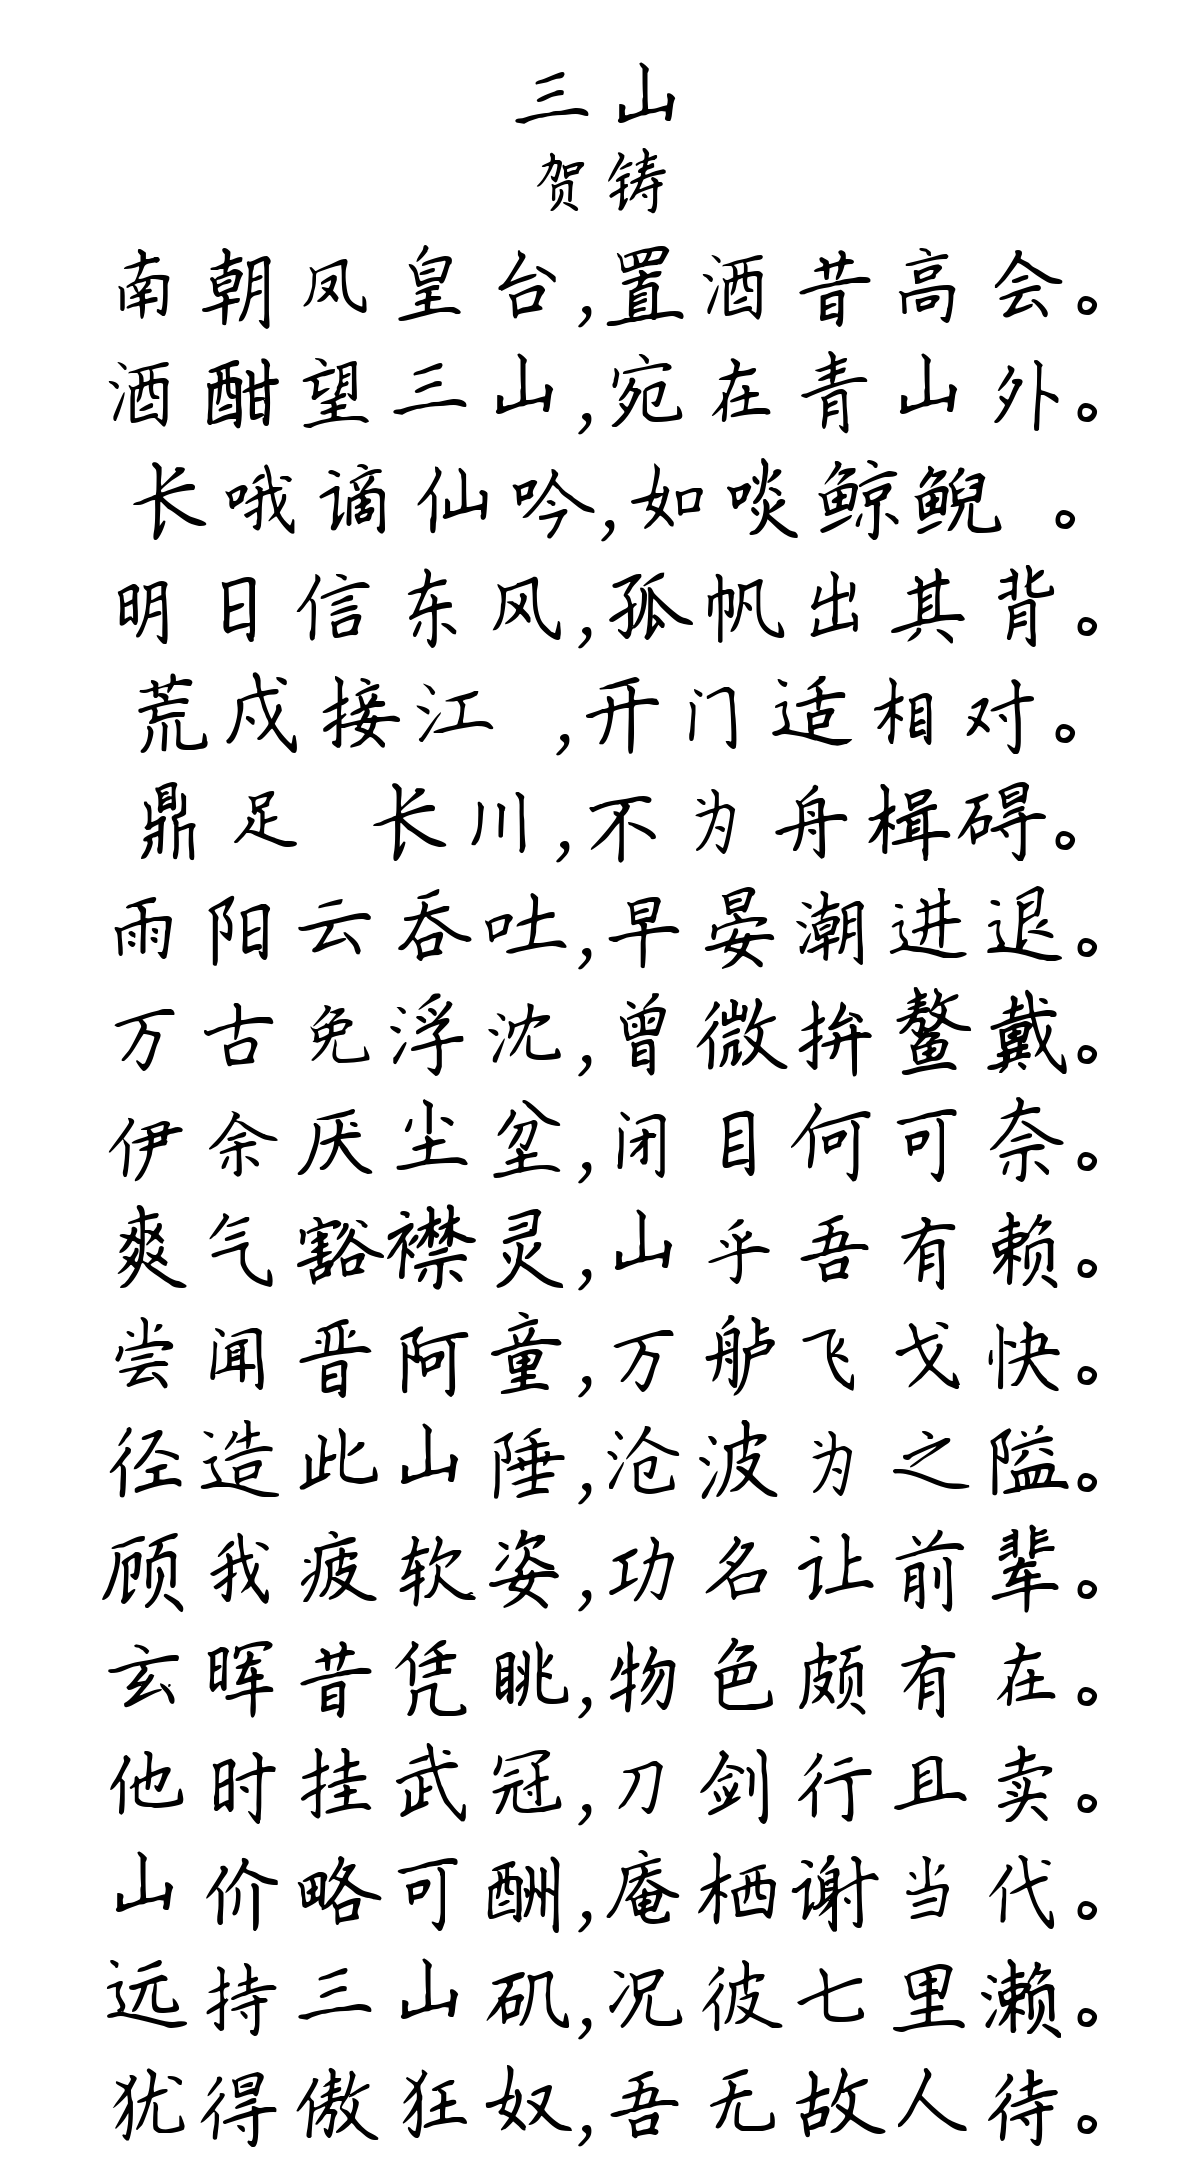 三山
贺铸
南朝凤皇台,置酒昔高会。
酒酣望三山,宛在青山外。
长哦谪仙吟,如啖鲸鲵 。
明日信东风,孤帆出其背。
荒戍接江 ,开门适相对。
鼎足 长川,不为舟楫碍。
雨阳云吞吐,早晏潮进退。
万古免浮沈,曾微拚鳌戴。
伊余厌尘坌,闭目何可奈。
爽气豁襟灵,山乎吾有赖。
尝闻晋阿童,万舻飞戈快。
径造此山陲,沧波为之隘。
顾我疲软姿,功名让前辈。
玄晖昔凭眺,物色颇有在。
他时挂武冠,刀剑行且卖。
山价略可酬,庵栖谢当代。
远持三山矶,况彼七里濑。
犹得傲狂奴,吾无故人待。